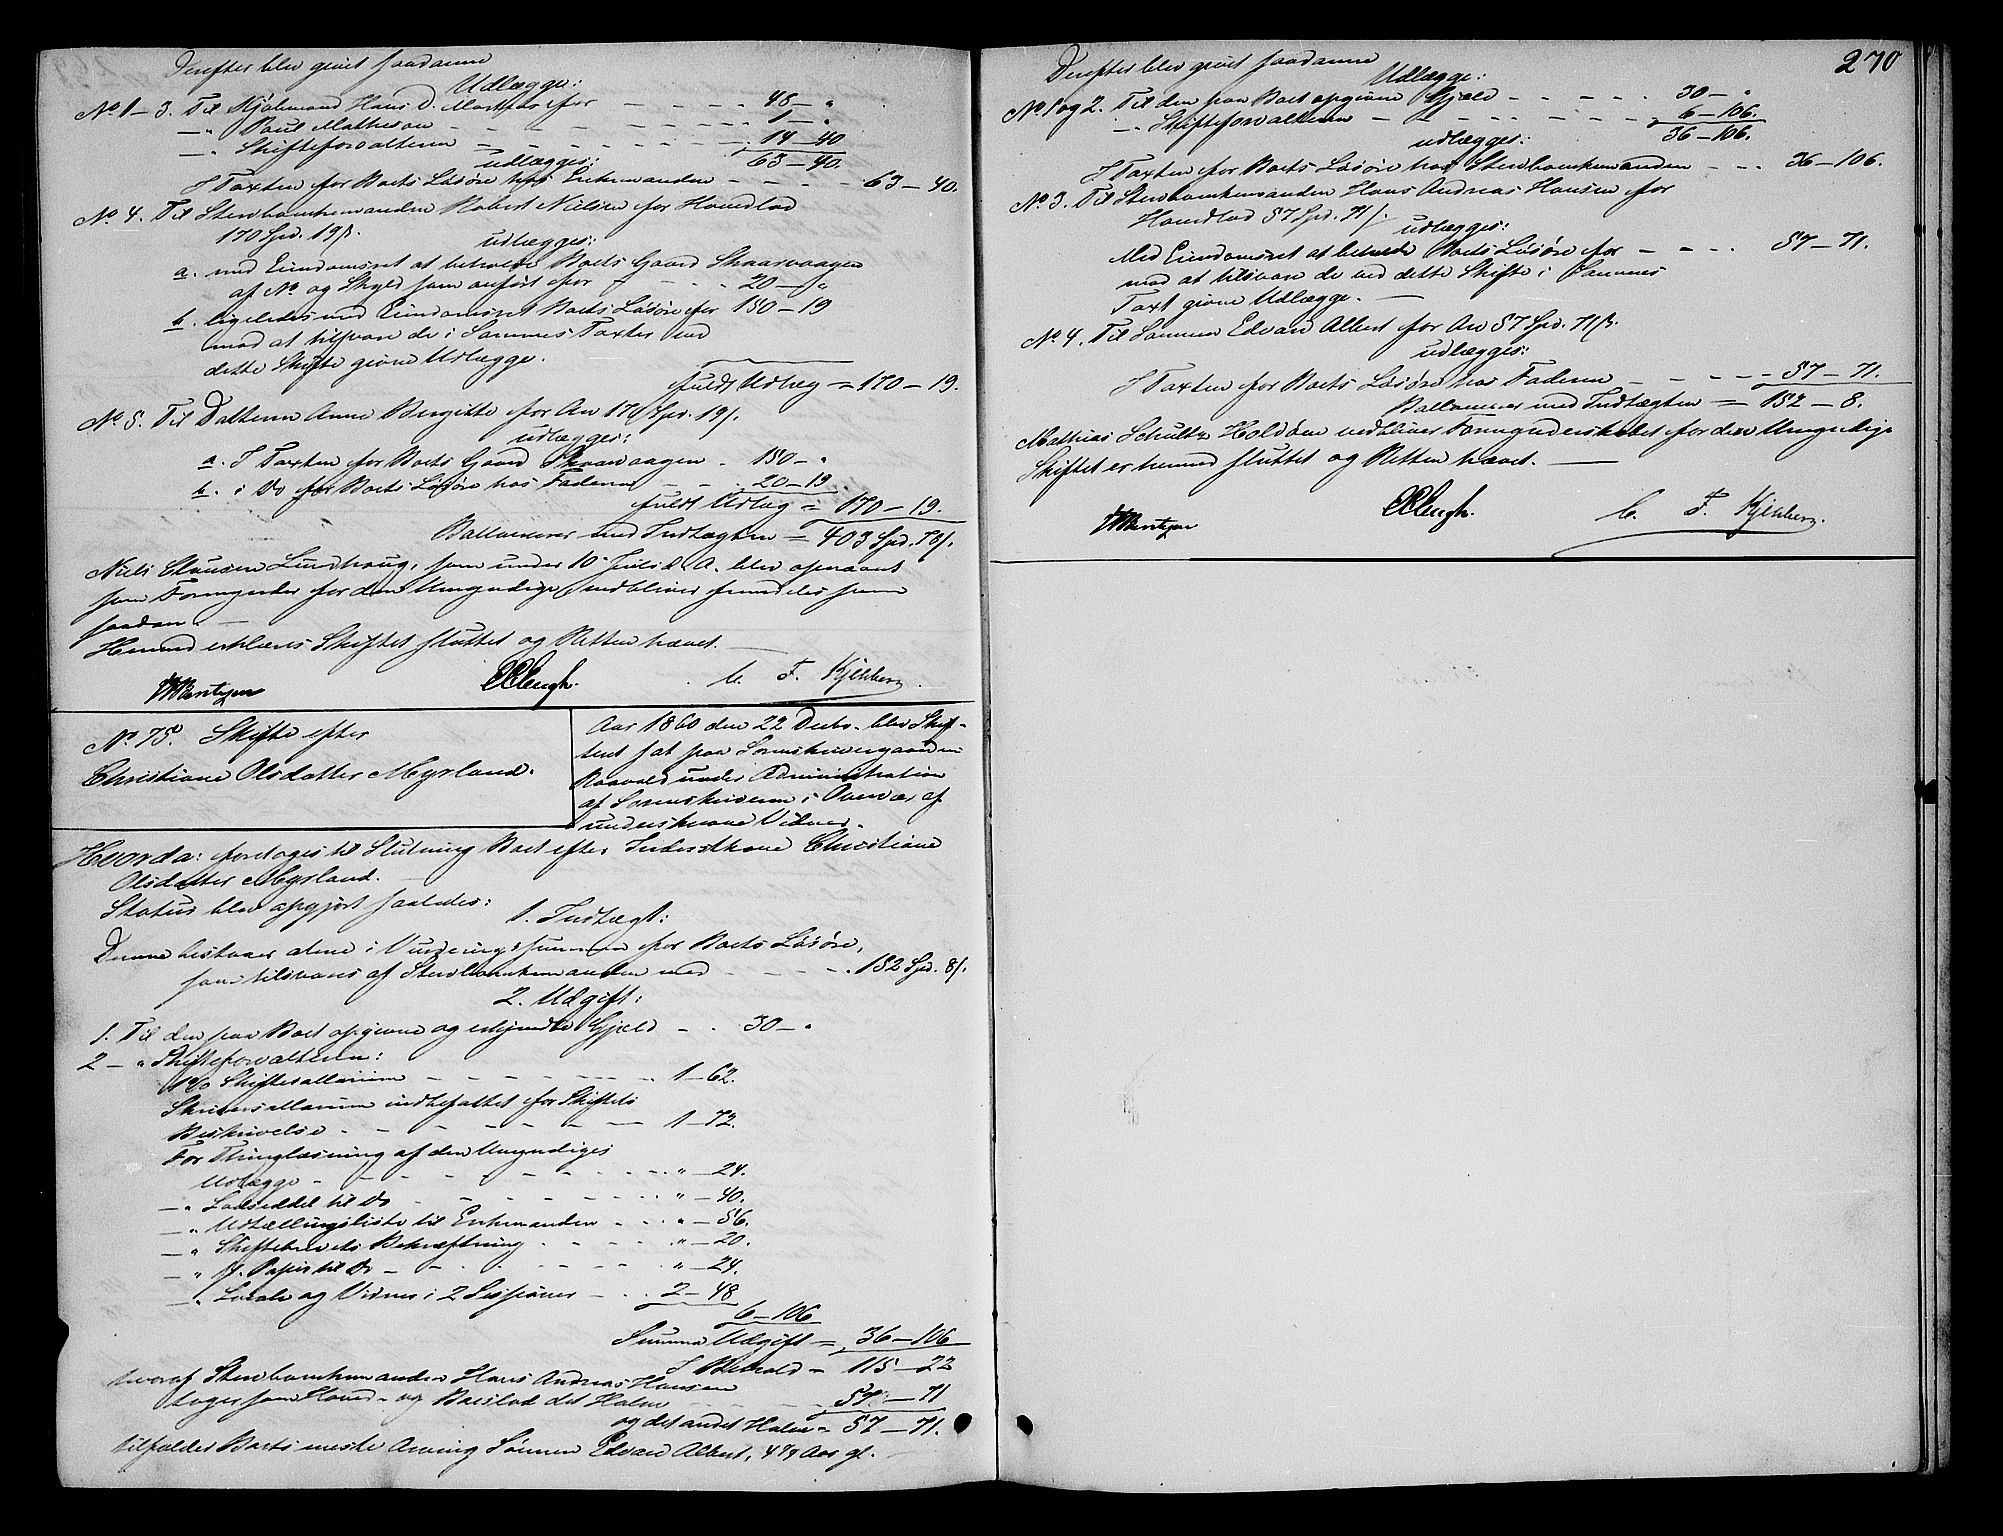 Derefter blev givet saadanne
Udlægge:
No 1-3. Til Kjøbmand Hans D. for - - - - 48 - "
-" Poul Mathesen - - - - 1 - "
-" Skifteforvalteren - - - - 14 - 40
63 - 40.
udlægges:
I Taxten for Boets Løsøre hos Enkemanden - - - - 63 - 40.
No 4. Til Stervboenkemanden Robert Nielsen for Hovedlod
170 Spd. 19 ß.
udlægges:
a. med Eiendomsret at beholde Boets Gaard Skaarvaagen
af No og Skyld som anført for - - - 20 - "
b. ligeledes med Eiendomsret Boets Løsøre for 150 - 19
mod at tilsvare de i Sammes Taxter ved
dette Skifte givne Udlægge.
fuldt Udlæg = 170 - 19.
No 5. Til Datteren Anne Bergitte for Arv 170 Spd. 19 ß.
udlægges:
a. I Taxten for Boets Gaard Skaarvaagen - 150 - "
b. i Do for Boets Løsøre hos Faderen - - 20 - 19.
fuldt Udlæg = 170 - 19.
Ballancerer med Indtægten = 403 Spd. 78 ß.
Niels Clausen Lundhaug, som under 10 Juli d. A. blev opnævnt
som Formynder for den Umyndige, vedbliver fremdeles som
saadan. -
Hermed erklæres Skiftet sluttet og Retten hævet. -
C. F. Kjelsberg.
No 75. Skifte efter
Christiane Olsdatter Myrland.
Aar 1860 den 22 Decbr. blev Skif-
teret sat paa Sorenskrivergaarden
under Administration
af Sorenskriveren i Overvær af
underskrevne Vidner.
Hvorda: foretoges til Slutning Boet efter Inderstkone Christiane
Olsdatter Myrland. -
Status blev opgjort saaledes:
1. Indtægt:
Denne bestaaer alene i Vurderingssummen for Boets Løsøre,
som tilsvares af Stervboenkemanden med - - - - 152 Spd. 8 ß.
2. Udgift:
1. Til den paa Boet opgivne og erkjendte Gjæld - - 30 - "
2 - " Skifteforvalteren:
1% Skiftesallarium - - - - 1 - 62.
Skriversallarium indbefattet for Skiftets
Beskrivelse - - - - 1 - 72.
For Thinglæsning af den Umyndiges
Udlægge - - - - " - 24.
-" Lodseddel til Do - - - - " - 40.
-" Udtællingsliste til Enkemanden - - - " - 56.
-" Skiftebrevets Bekræftning - - - " - 20.
-" st. Papir til Do - - - - " - 24.
-" Locale og Vidner i 2 Sessioner - - - 2 - 48
6 - 106
Summa Udgift = 36 - 106
I Behold = 115 - 22
hvoraf Stervboenkemanden Hans Andreas Hansen
tager som Hoved- og Boeslod det Halve - - - 57 - 71
og det andet Halve = 57 - 71.
tilfalder Boets eneste Arving Sønnen Edvard Albert, 4 3/4 Aar gl.
270
Derefter blev givet saadanne
Udlægge:
No 1 og 2. Til den paa Boet opgivne Gjæld - - - - 30 - "
-" Skifteforvalteren - - - - 6 - 106.
36 - 106.
udlægges:
I Taxten for Boets Løsøre hos Stervboenkemanden - - - 36 - 106.
No 3. Til Stervboenkemanden Hans Andreas Hansen for
Hovedlod 57 Spd. 71 ß.
udlægges:
Med Eiendomsret at beholde Boets Løsøre for - - - 57 - 71.
mod at tilsvare de ved dette Skifte i Sammes
Taxt givne Udlægge. -
No 4. Til Sønnen Edvard Albert for Arv 57 Spd. 71 ß.
udlægges:
I Taxten for Boets Løsøre hos Faderen - - - - 57 - 71.
Ballancerer med Indtægten = 152 - 8.
Mathias Schultz Holdøen vedbliver Formynderskabet for den Umyndige
Skiftet er hermed sluttet og Retten hævet. -
C. F. Kjelsberg.